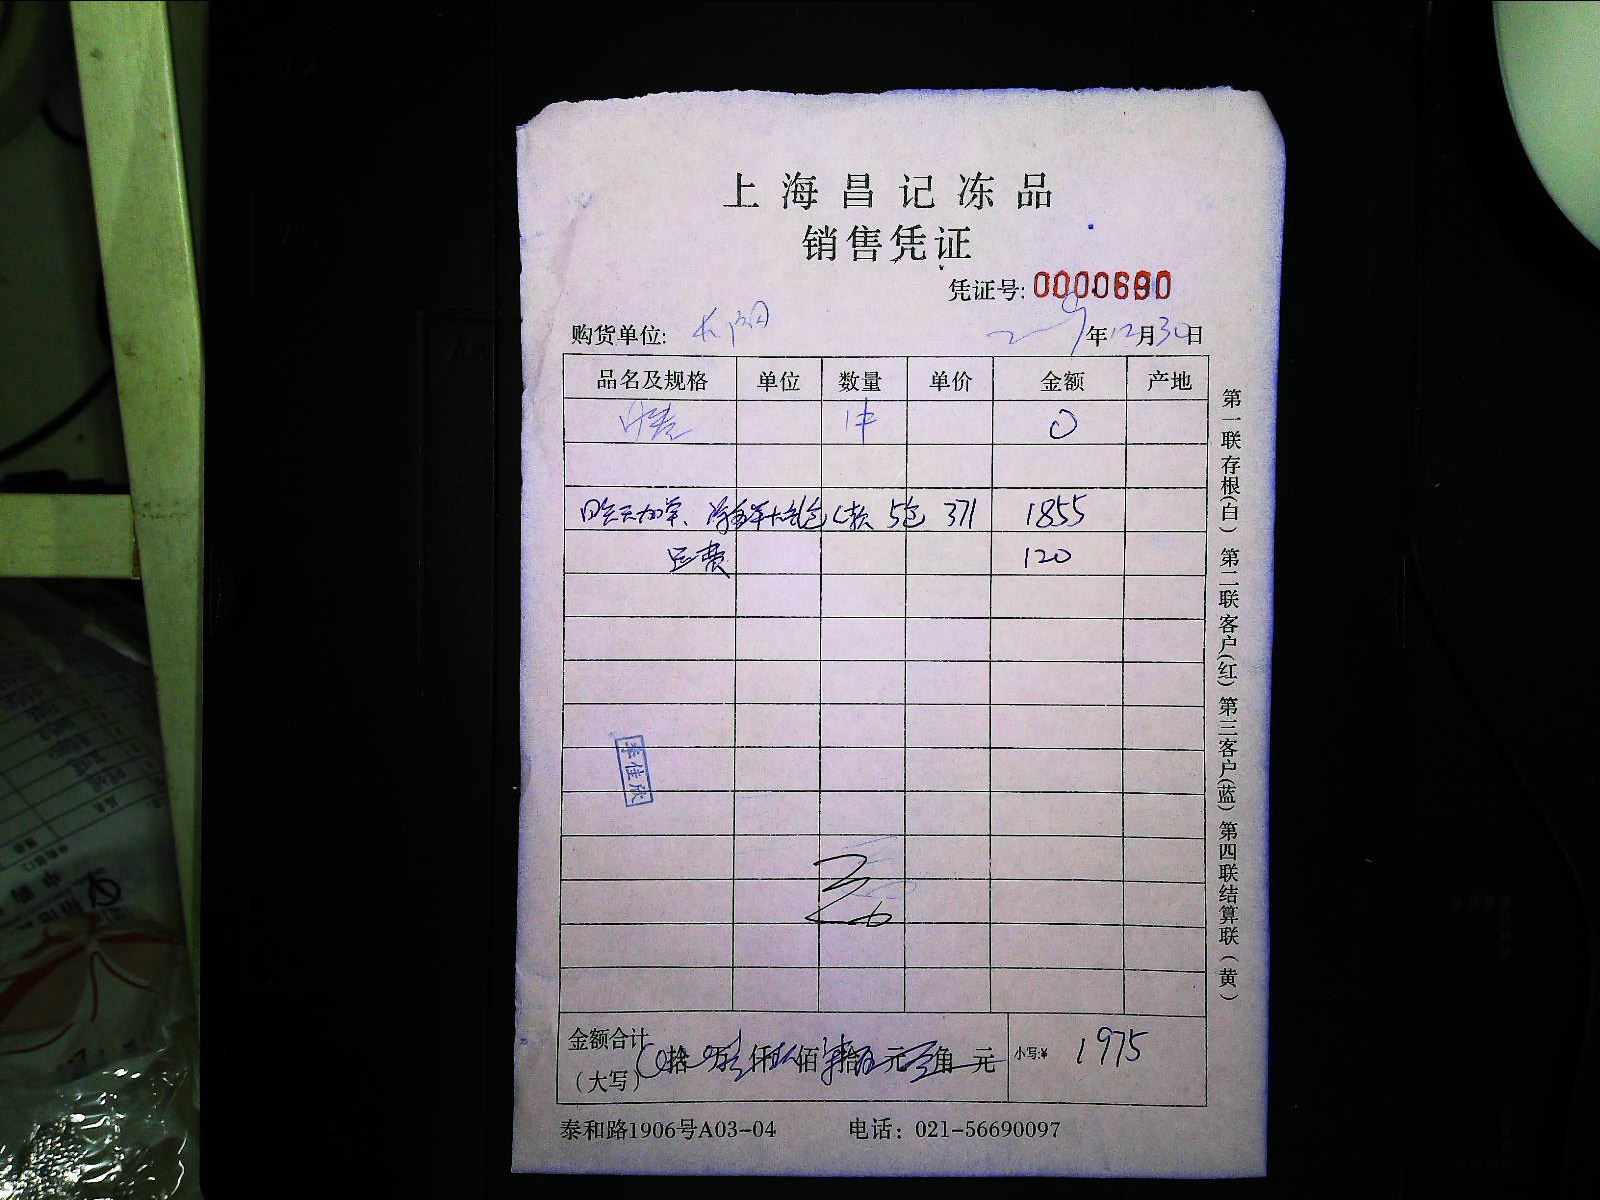 上海昌记冻品
销售凭证
凭证号: 0000690
购货单位: 年12月30日
品名及规格 单位 数量 单价 金额 产地
1件 0
昨天加单、 5包 371 1855
运费 120
李佳欣
金额合计
（大写） 拾 万 仟 佰 拾 元 角 元 小写:¥ 1975
泰和路1906号A03-04 电话：021-56690097
第一联存根(白) 第二联客户(红) 第三客户(蓝) 第四联结算联(黄)